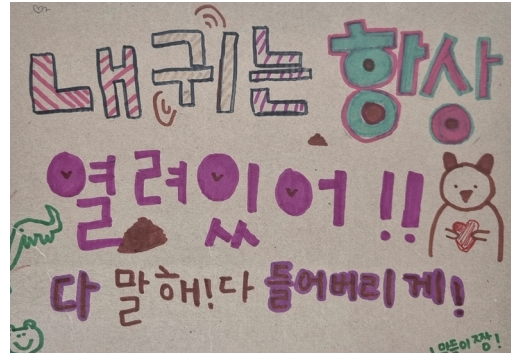 내 귀는 항상
열려있어!!
다 말해! 다 들어버리게!